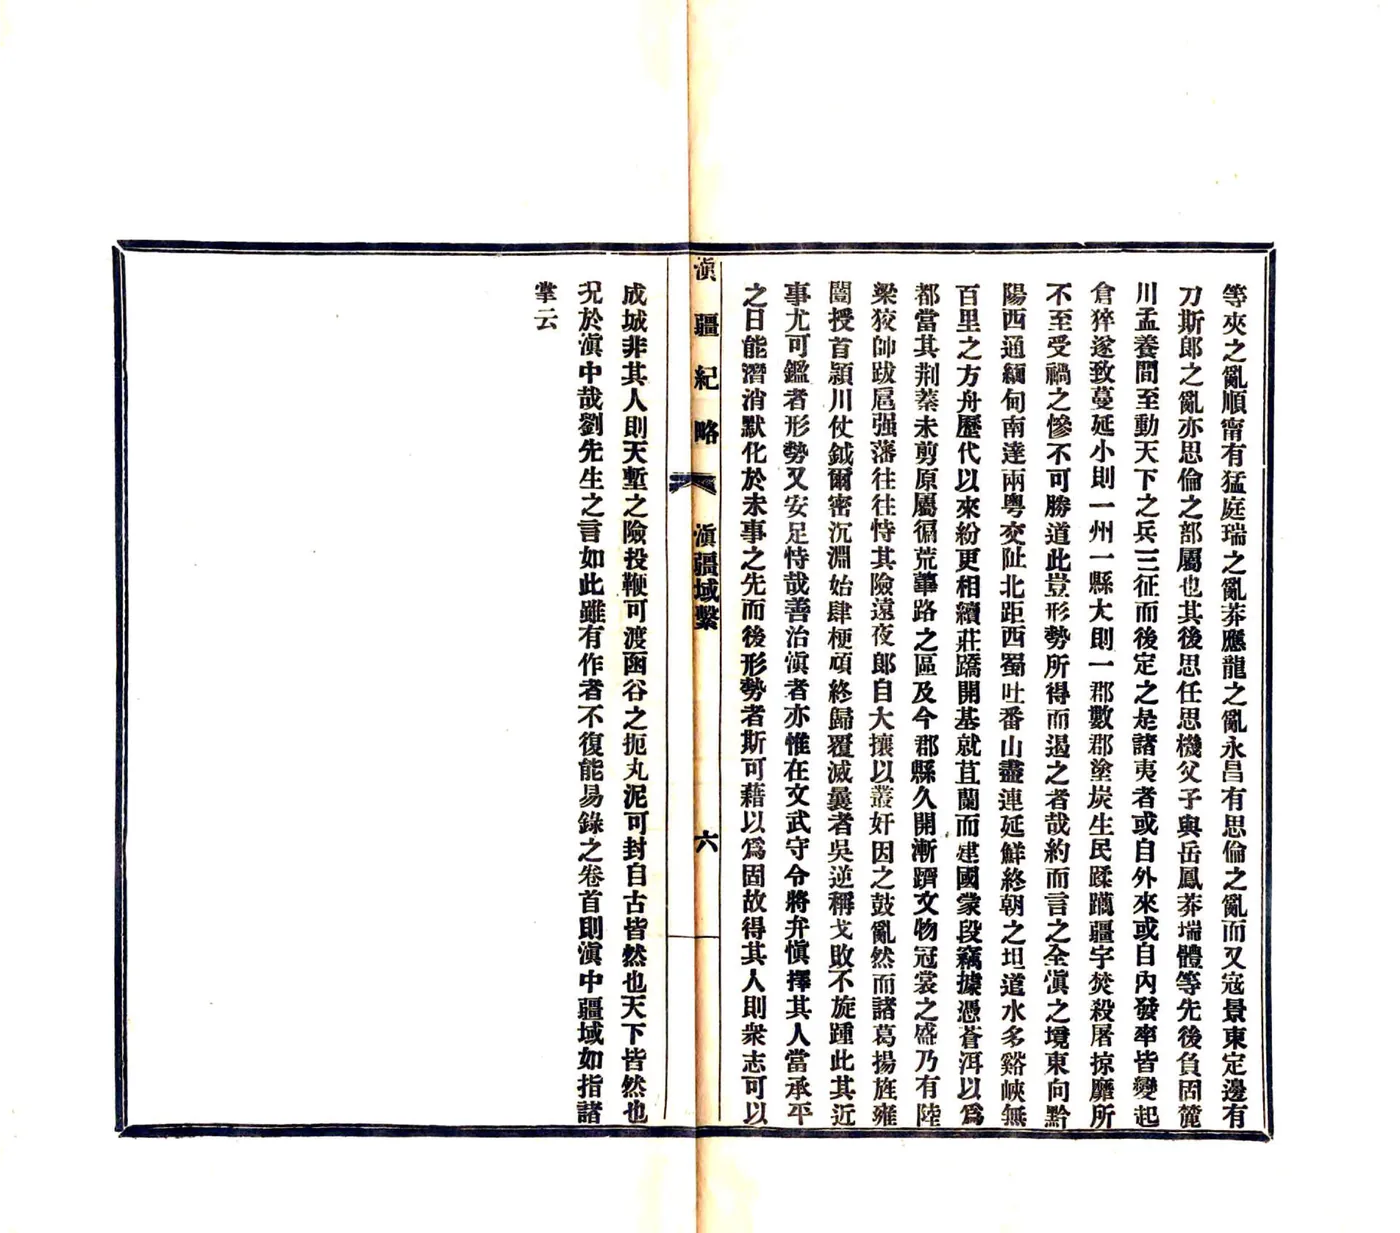 等夾之亂順甯有猛庭瑞之亂莽應龍之亂永昌有思倫之亂而又寇景東定邊有
刀斯郎之亂亦思倫之部屬也其後思任思機父子與岳鳳莽瑞體等先後負固麓
川孟養間至動天下之兵三征而後定之是諸夷者或自外來或自內發率皆變起
倉猝遂致蔓延小則一州一縣大則一郡數郡塗炭生民蹂躪疆宇焚殺屠掠靡所
不至受禍之慘不可勝道此豈形勢所得而遏之者哉約而言之全滇之境東向黔
陽西通緬甸南達兩粵交阯北距西蜀吐番山盡連延鮮終朝之坦道水多谿峽無
百里之方舟歷代以來紛更相續莊蹻開基就苴蘭而建國蒙段竊據憑蒼洱以爲
都當其荆蓁未剪原屬徧荒蓽路之區及今郡縣久開漸躋文物冠裳之盛乃有陸
梁狡帥跋扈强藩往往恃其險遠夜郎自大攘以叢奸因之鼓亂然而諸葛揚旌雍
闓授首潁川仗鉞爾密沉淵始肆梗頑終歸覆滅曩者吳逆稱戈敗不旋踵此其近
事尤可鑑者形勢又安足恃哉善治滇者亦惟在文武守令將弁愼擇其人當承平
之日能潛消默化於未事之先而後形勢者斯可藉以爲固故得其人則衆志可以
滇疆紀略
滇疆域繫
六
成城非其人則天塹之險投鞭可渡函谷之扼丸泥可封自古皆然也天下皆然也
況於滇中哉劉先生之言如此雖有作者不復能易錄之卷首則滇中疆域如指諸
掌云